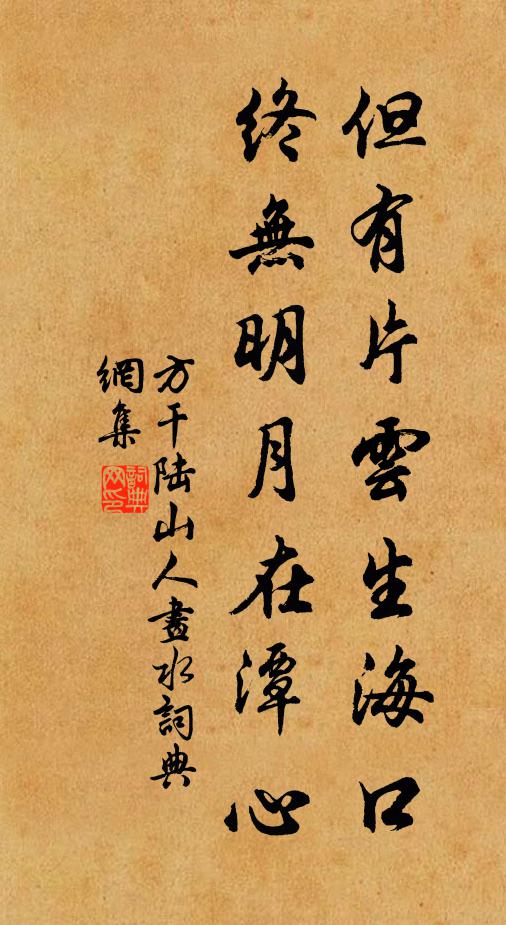 但有片雲生海口
終無明月在潭心
方干陆山人畫水詞典
網集
詞典
网印